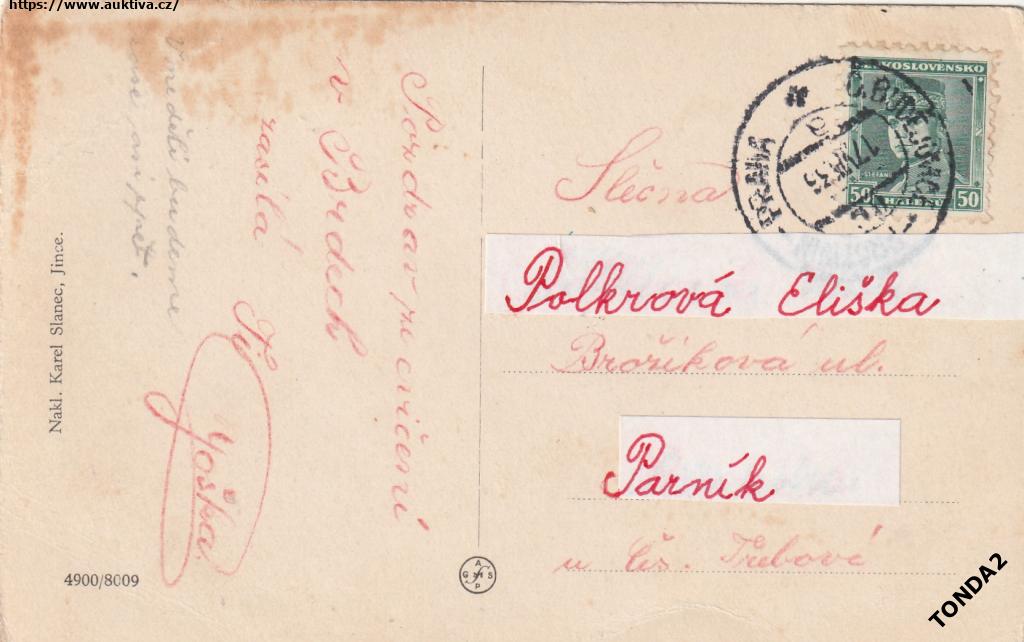 https://www.auktiva.cz/
Pozdrav ze cvičení
v Brdech
zasílá
Tvůj
Joška
V neděli budeme
zase zpět.
Nakl. Karel Slanec, Jince.
4900/8009
A
G S
P
ČESKOSLOVENSKO
ŠTEFÁNIK
50 HALÉŘŮ 50
PRAHA
Č. BUDĚJOVICE
17.VII.35
Slečna
Polkrová Eliška
Brožíkova ul.
Parník
u Čes. Třebové
TONDA2